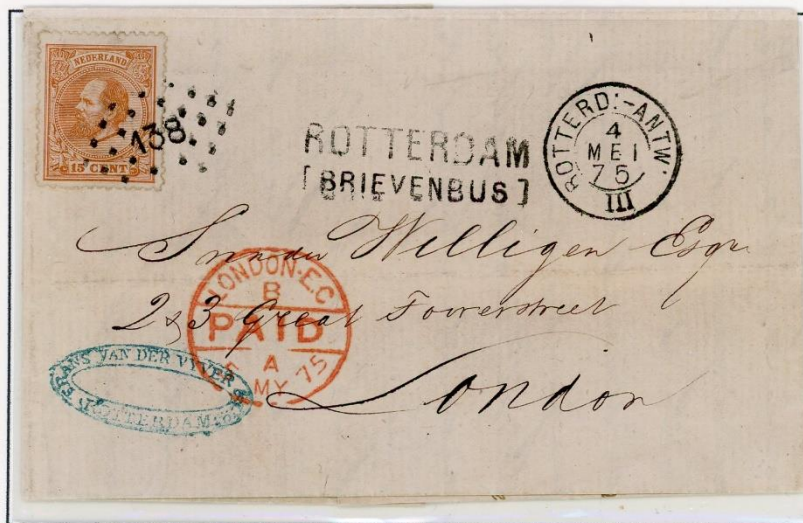 NEDERLAND
15 CENT
138
ROTTERDAM
[BRIEVENBUS]
ROTTERD:-ANTW:
4
MEI
75
III
Willigen Esqr
2 & 3 Great Towerstreet
London
LONDON·E.C
B
PAID
A
MY 75
FRANS VAN DER VYVER
ROTTERDAM